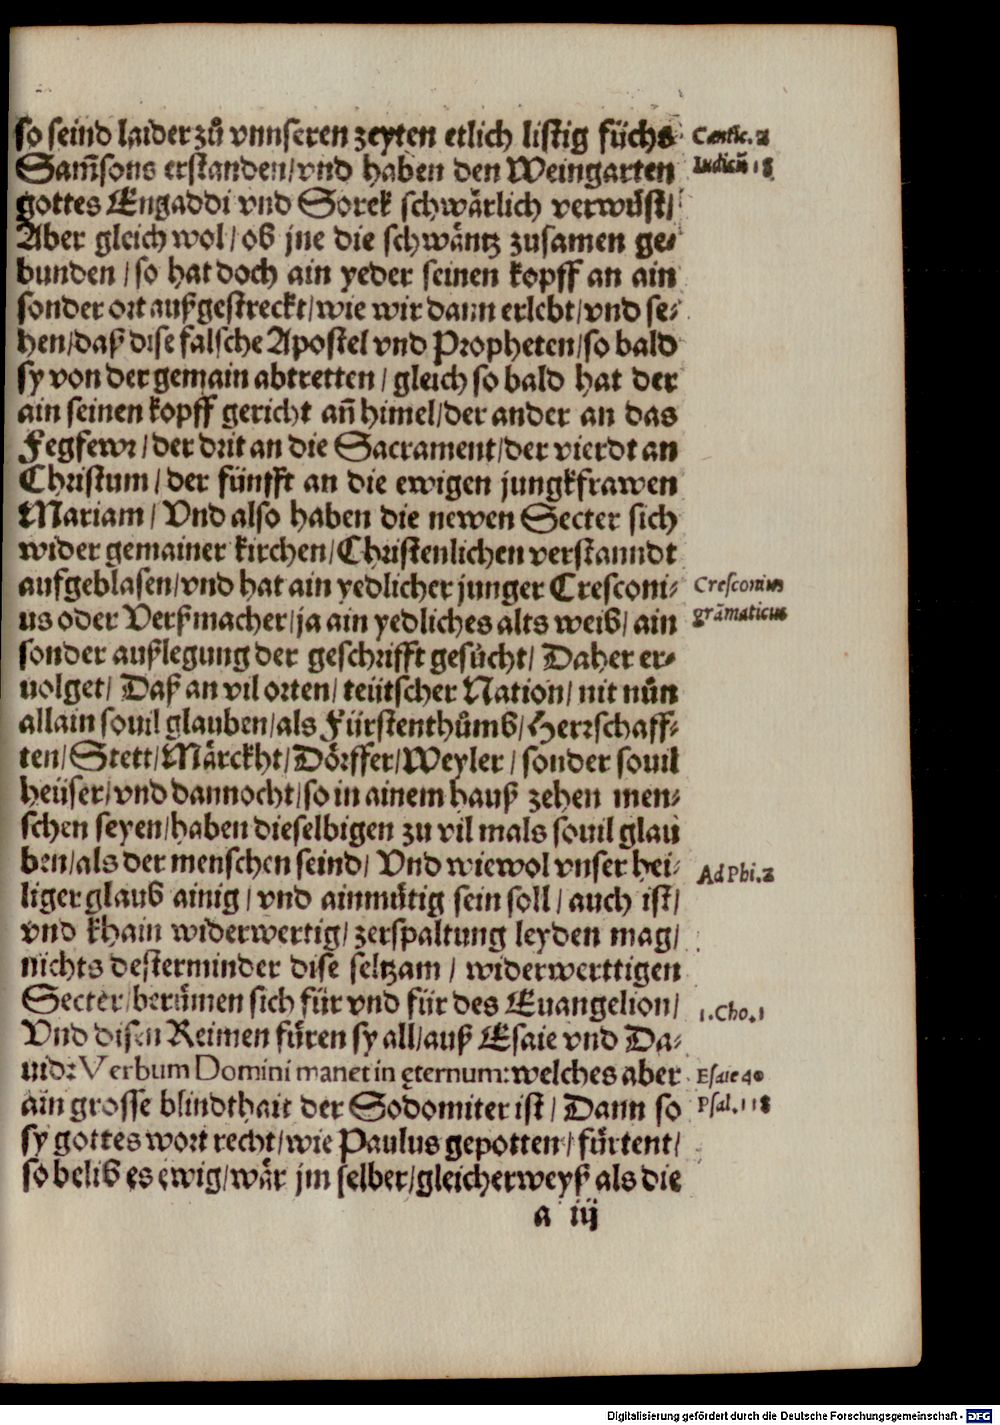 so seind laider zů vnnseren zeyten etlich listig füchs
Sam̃sons erstanden/vnd haben den Weingarten
gottes Engaddi vnd Sorek schwärlich verwůst/
Aber gleich wol/ob jne die schwäntz zusamen ge⸗
bunden/so hat doch ain yeder seinen kopff an ain
sonder ort außgestreckt/wie wir dann erlebt/vnd se⸗
hen/daß dise falsche Apostel vnd Propheten/so bald
sy von der gemain abtretten/gleich so bald hat der
ain seinen kopff gericht an̄ himel/der ander an das
Fegfewr/der drit an die Sacrament/der vierdt an
Christum/der fünfft an die ewigen jungkfrawen
Mariam/Vnd also haben die newen Secter sich
wider gemainer kirchen/Christenlichen verstanndt
aufgeblasen/vnd hat ain yedlicher junger Cresconi⸗
us oder Verßmacher/ja ain yedliches alts weib/ain
sonder außlegung der geschrifft gesůcht/Daher er⸗
uolget/Daß an vil orten/teütscher Nation/nit nůn
allain souil glauben/als Fürstenthůmb/Herrschaff⸗
ten/Stett/Märckht/Dörffer/Weyler/sonder souil
heüser/vnd dannocht/so in ainem hauß zehen men⸗
schen seyen/haben dieselbigen zu vil mals souil glau
ben/als der menschen seind/Vnd wiewol vnser hei⸗
liger glaub ainig/vnd ainmůtig sein soll/auch ist/
vnd khain widerwertig/zerspaltung leyden mag/
nichts desterminder dise seltzam/widerwerttigen
Secter/berůmen sich für vnd für des Euangelion/
Vnd disen Reimen fůren sy all/auß Esaie vnd Da⸗
uid: Verbum Domini manet in ęternum: welches aber
ain grosse blindthait der Sodomiter ist/Dann so
sy gottes wort recht/wie Paulus gepotten/fůrtent/
so belib es ewig/wär jm selber/gleicherweyß als die
a iij
Cantic. 2
Iudicū 15
Cresconius
grāmaticus
Ad Phi. 2
1. Cho. 1
Esaie 40
Psal. 118
Digitalisierung gefördert durch die Deutsche Forschungsgemeinschaft - DFG